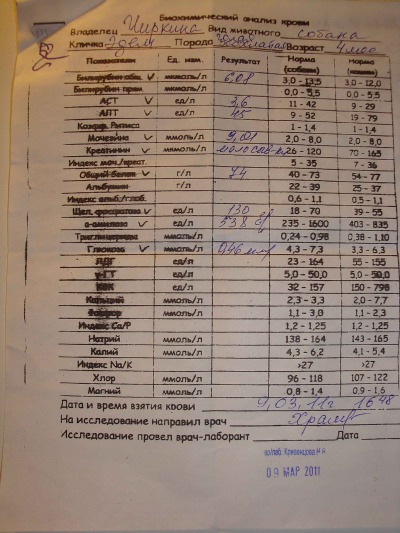 Биохимический анализ крови
Владелец Чиркина Вид животного собака
Кличка Порода Возраст 4 мес
Показатели Ед. изм. Результат Норма (собаки) Норма (кошки)
Билирубин общ. ✓ мкмоль/л 6,08 3,0 - 13,5 3,0 - 12,0
Билирубин прям. мкмоль/л 0,0 - 5,5 0,0 - 5,5
АСТ ✓ ед/л 3,6 11 - 42 9 - 29
АЛТ ✓ ед/л 45 9 - 52 19 - 79
Коэфф. Ритиса 1 - 1,4 1 - 1,4
Мочевина ✓ ммоль/л 2,0 - 8,0 2,0 - 8,0
Креатинин ✓ мкмоль/л 26 - 120 70 - 165
Индекс моч./креат. 5 - 35 7 - 36
Общий белок ✓ г/л 74 40 - 73 54 - 77
Альбумин г/л 22 - 39 25 - 37
Индекс альб./глоб. 0,6 - 1,1 0,5 - 1,1
Щел. фосфатаза ✓ ед/л 130 18 - 70 39 - 55
α-амилаза ✓ ед/л 538 235 - 1600 403 - 835
Триглицериды ммоль/л 0,24 - 0,98 0,38 - 1,10
Глюкоза ✓ ммоль/л 0,46 4,3 - 7,3 3,3 - 6,3
ЛДГ ед/л 23 - 164 55 - 155
γ-ГТ ед/л 5,0 - 50,0 5,0 - 50,0
КФК ед/л 32 - 157 150 - 798
Кальций ммоль/л 2,3 - 3,3 2,0 - 7,7
Фосфор ммоль/л 1,1 - 3,0 1,1 - 2,3
Индекс Са/Р 1,2 - 1,25 1,2 - 1,25
Натрий ммоль/л 138 - 164 143 - 165
Калий ммоль/л 4,3 - 6,2 4,1 - 5,4
Индекс Na/K >27 >27
Хлор ммоль/л 96 - 118 107 - 122
Магний ммоль/л 0,8 - 1,4 0,9 - 1,6
Дата и время взятия крови 9.03.11г 16 48
На исследование направил врач Храмов
Исследование провел врач-лаборант Дата
Кривенцова Н.Я
09 МАР 2011